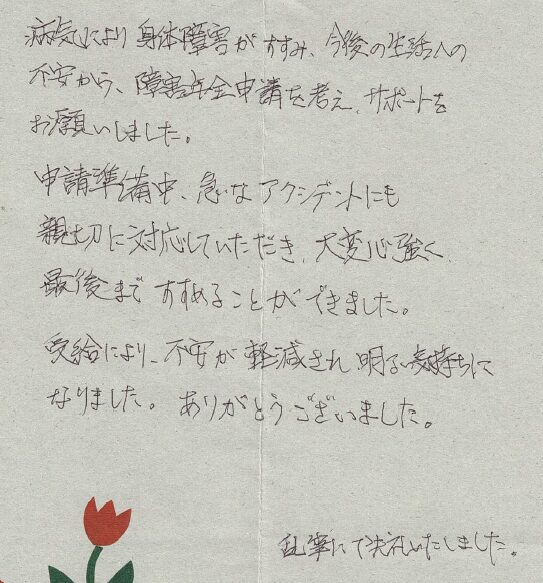 病気により身体障害がすすみ、今後の生活への
不安から、障害年金申請を考え、サポートを
お願いしました。
申請準備中、急なアクシデントにも
親切に対応していただき、大変心強く、
最後まですすめることができました。
受給により、不安が軽減され明るい気持ちに
なりました。ありがとうございました。
乱筆にて失礼いたしました。